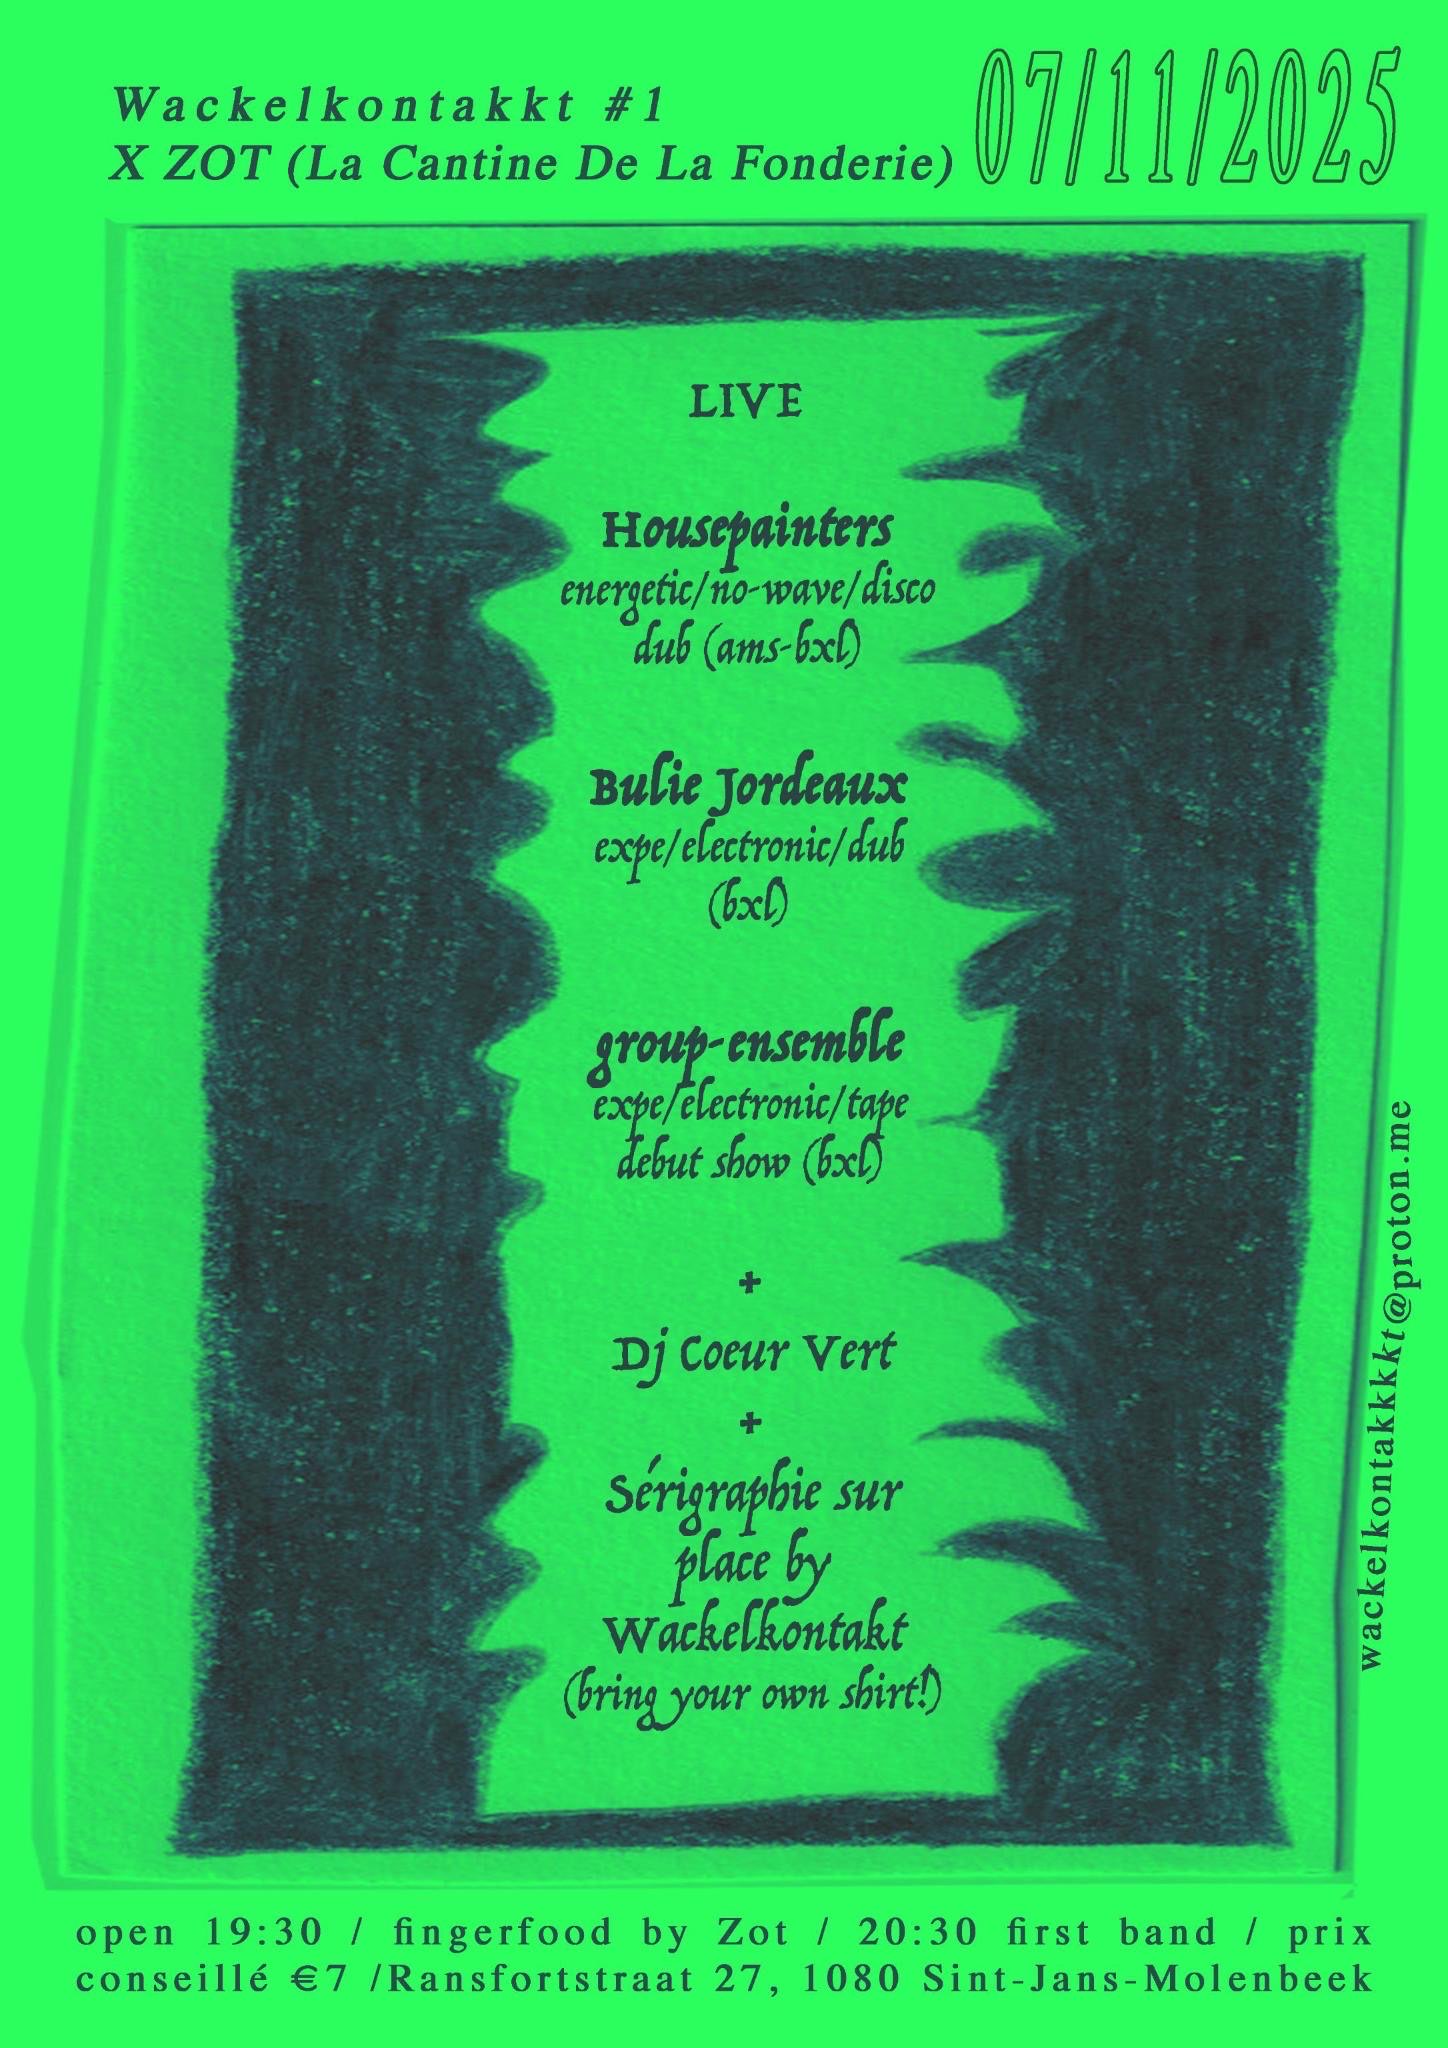 Wackelkontakkt #1
X ZOT (La Cantine De La Fonderie)
07/11/2025
LIVE
Housepainters
energetic/no-wave/disco
dub (ams-bxl)
Bulie Jordeaux
expe/electronic/dub
(bxl)
group-ensemble
expe/electronic/tape
debut show (bxl)
+
Dj Coeur Vert
+
Sérigraphie sur
place by
Wackelkontakt
(bring your own shirt!)
wackelkontakkkt@proton.me
open 19:30 / fingerfood by Zot / 20:30 first band / prix
conseillé €7 /Ransfortstraat 27, 1080 Sint-Jans-Molenbeek